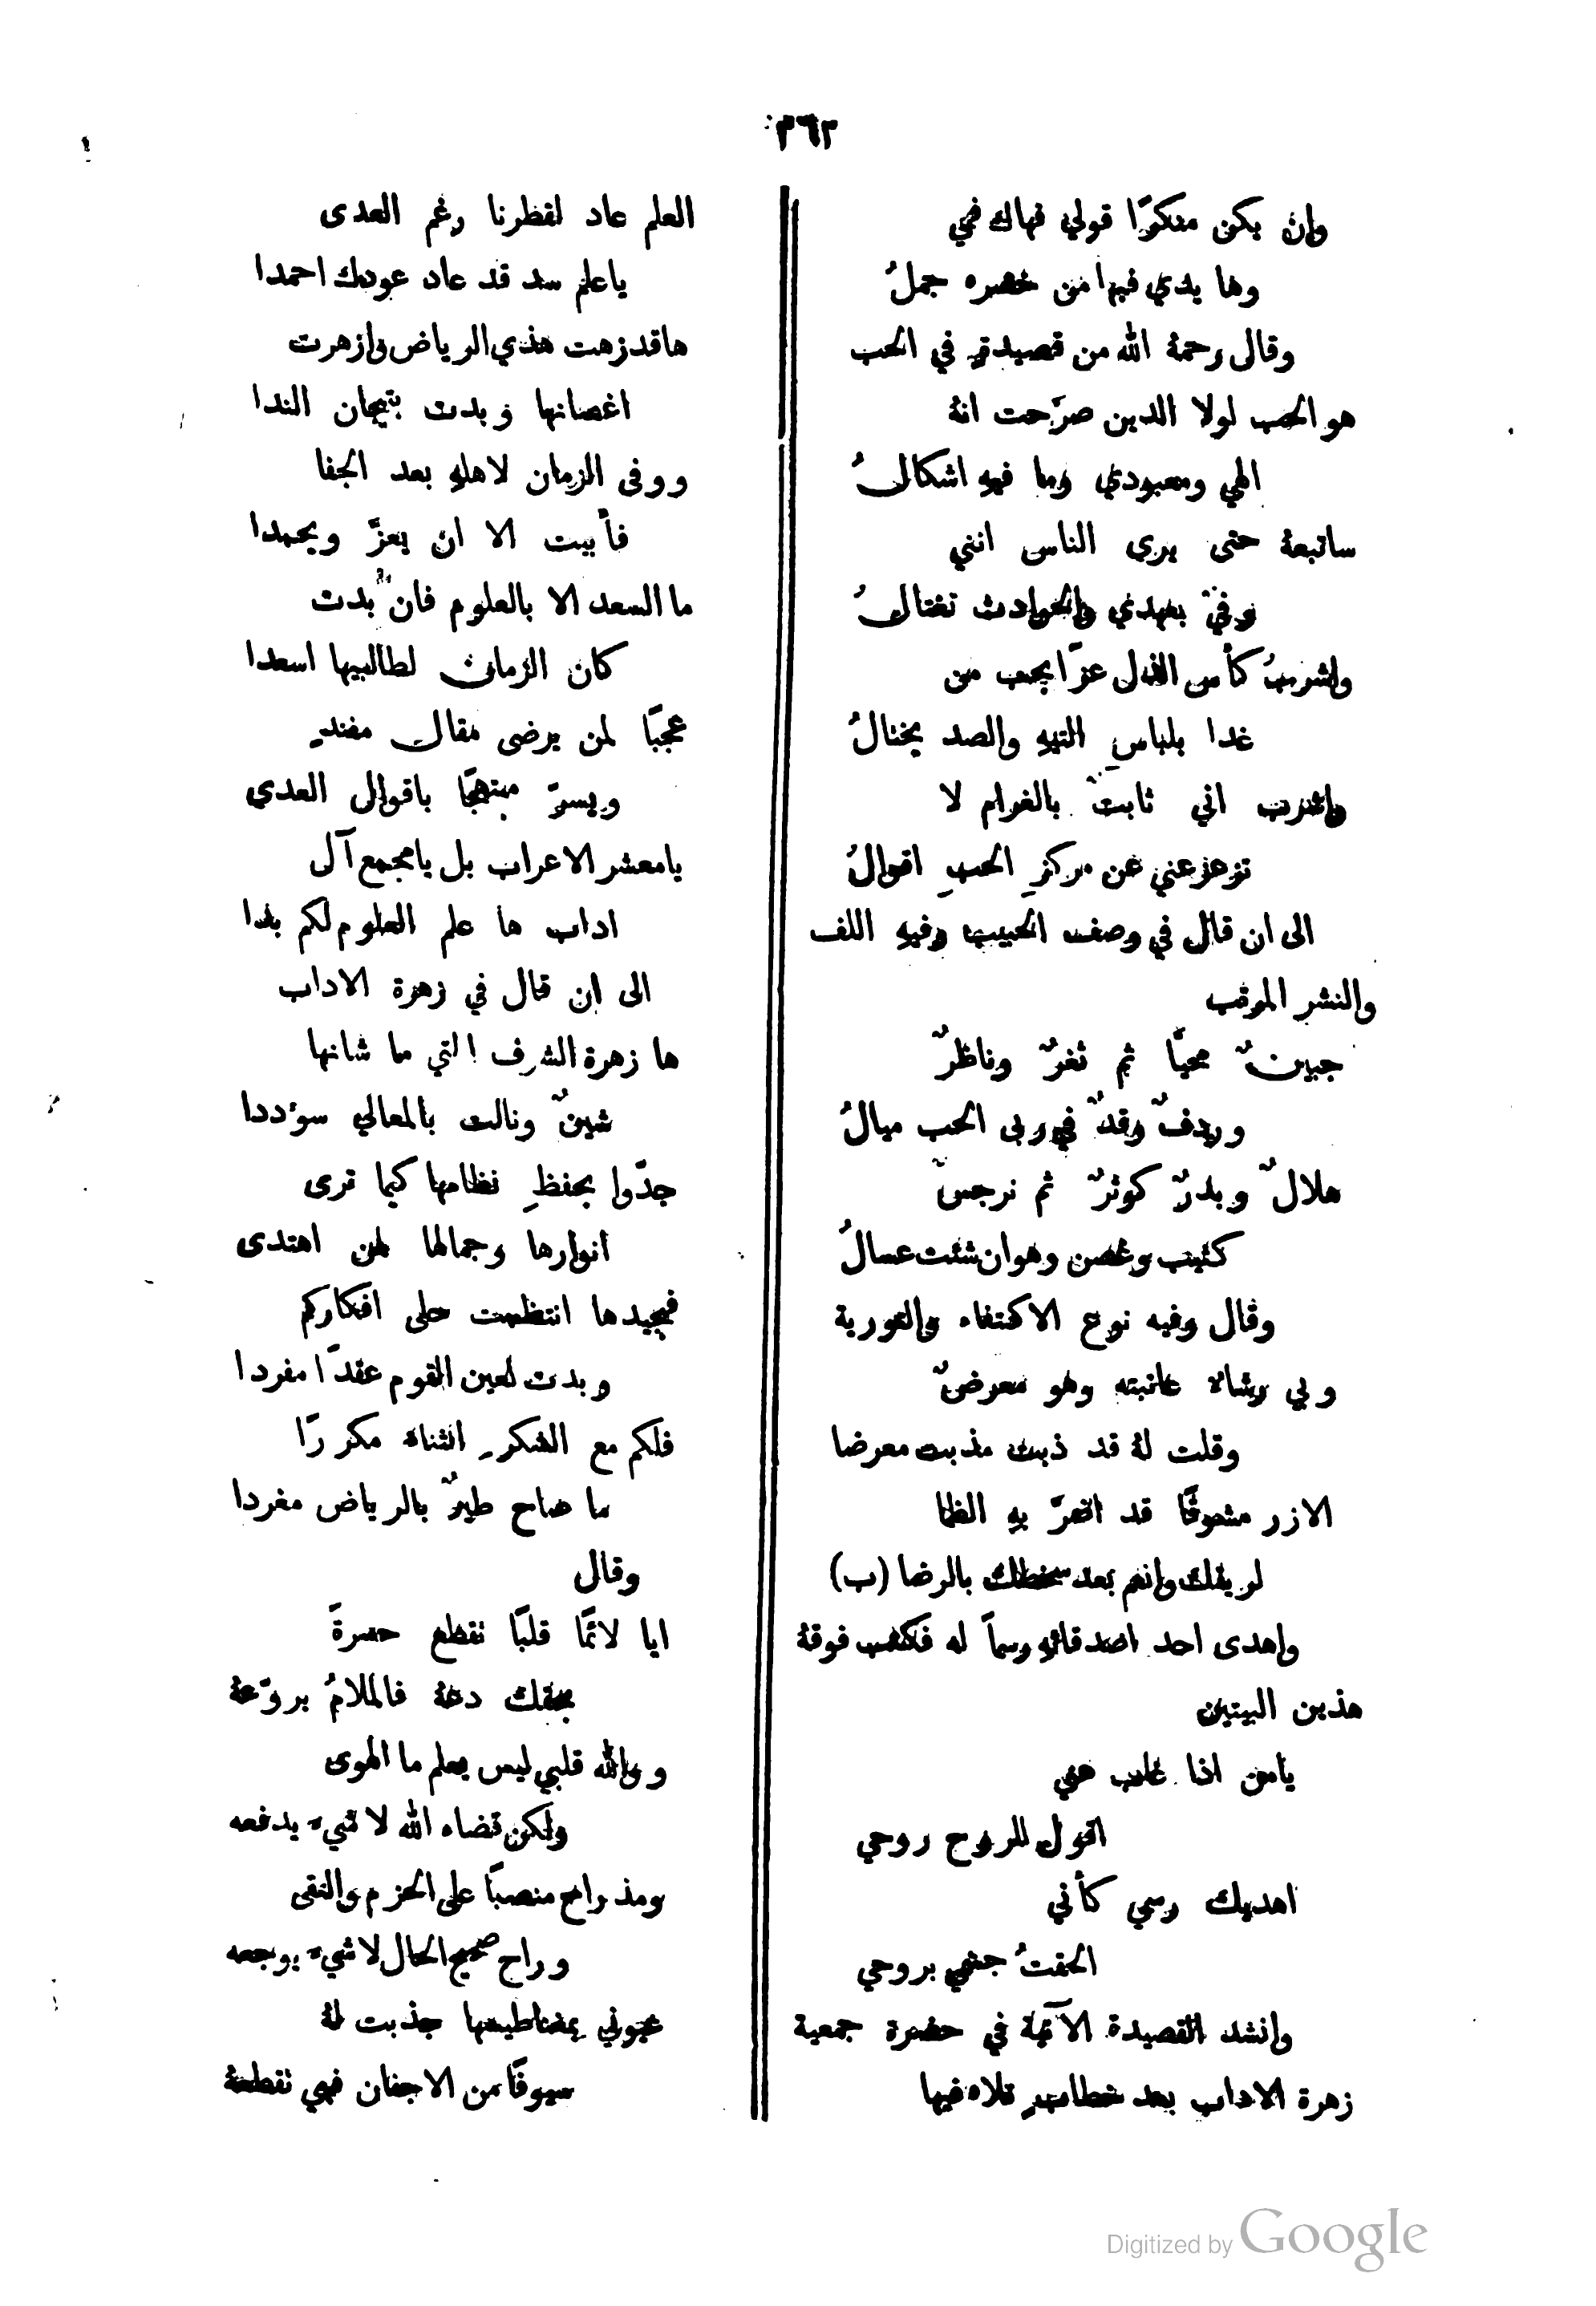 ٣٦٢
وان يكن منكرًا قولي فهاك في
وها يدي فيها من خصره جملُ
وقال رحمة الله من قصيدةٍ في الحب
هو الحب لولا الدين صرّحت انهُ
الهي ومعبودي وما فيهِ اشكالُ
ساتبعهُ حتى يرى الناس انني
وفيٌّ بعهدي والحوادث تغتالُ
واشربُ كأس الذل عزًّا بحب من
غدا بلباسِ التيهِ والصد يختالُ
واشرب اني ثابتٌ بالغرام لا
تزعزعني عن مركزِ الحبِ اقوالُ
الى ان قال في وصف الحبيب وفيهِ اللف
والنشر المرتب
جبينٌ محيًّا ثم ثغرٌ وناظرٌ
وردفٌ وقدٌّ في ربى الحب ميالُ
هلالٌ وبدرٌ كوثرٌ ثم نرجسٌ
كثيب وغصن وهو ان شئت عسالُ
وقال وفيه نوع الاكتفاء والتورية
وبي رشاه عاتبته وهو معرضٌ
وقلت لهُ قد ذبت مذ بت معرضا
الا زر مشوقًا قد اضرّ بهِ الظما
لريقك وانعم بعد سخطك بالرضا (ب)
واهدى احد اصدقائهِ رسماً له فكتب فوقهُ
هذين البيتين
يامن اذا غاب عني
اقول للروح روحي
اهديك رسمي كأني
الحقتُ جسمي بروحي
وانشد القصيدة الآتية في حضرة جمعية
زهرة الاداب بعد خطابٍ تلاه فيها
العلم عاد لقطرنا رغم العدى
ياعلم سد قد عاد عودك احمدا
هاقد زهت هذي الرياض وازهرت
اغصانها وبدت بتيجان الندا
ووفى الزمان لاهلهِ بعد الجفا
فأبيت الا ان يعزَّ ويحمدا
ما السعد الا بالعلوم فان بدت
كان الزمان لطالبيها اسعدا
عجبًا لمن يرضى مقال مفندٍ
ويسرّ مبتهجًا باقوال العدى
يامعشر الاعراب بل يامجمع آل
اداب ها علم العلوم لكم بدا
الى ان قال في زهرة الاداب
ها زهرة الشرف التي ما شانها
شينٌ ونالت بالمعالي سؤددا
جدّوا بحفظِ نظامها كيما ترى
انوارها وجمالها لمن اهتدى
فبجيدها انتظمت حلى افكاركم
وبدت لعين القوم عقدًا مفردا
فلكم مع الشكرِ الثناء مكررًا
ما صاح طيرٌ بالرياض مغردا
وقال
ايا لائمًا قلبًا تقطع حسرةً
بحقك دعهُ فالملامُ يروّعهُ
ووالله قلبي ليس يعلم ما الهوى
ولكن قضاء الله لا شيءَ يدفعه
ومذ راح منصبًا على الحزم والتقى
وراح صحيح الحال لا شيءَ يوجعه
عيوني بمغناطيسها جذبت لهُ
سيوفًا من الاجفان فهي تقطعهُ
Digitized by Google